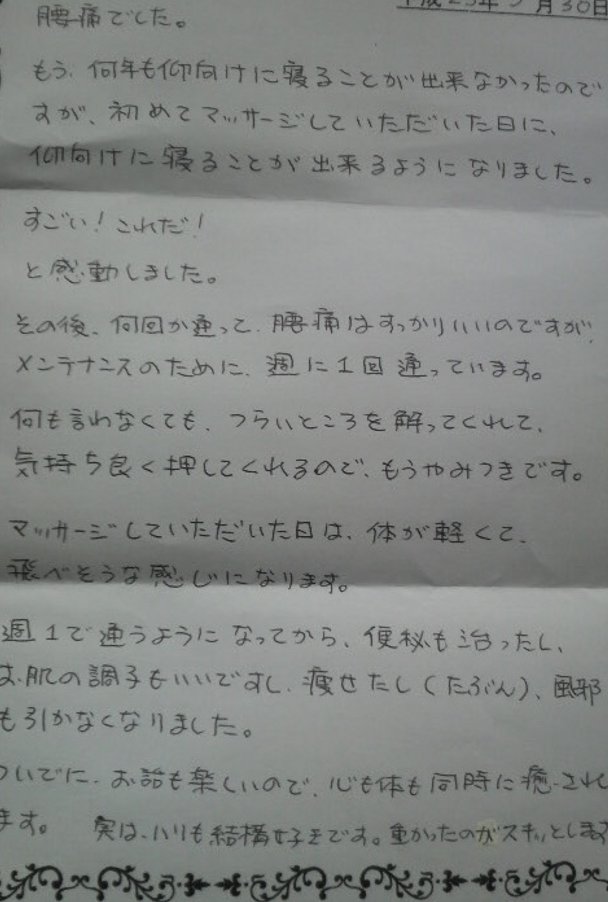 腰痛でした。
もう、何年も仰向けに寝ることが出来なかったので
すが、初めてマッサージしていただいた日に、
仰向けに寝ることが出来るようになりました。
すごい！これだ！
と感動しました。
その後、何回か通って、腰痛はすっかりいいのですが、
メンテナンスのために、週に1回通っています。
何も言わなくても、つらいところを解ってくれて、
気持ち良く押してくれるので、もうやみつきです。
マッサージしていただいた日は、体が軽くて、
飛べそうな感じになります。
週1で通うようになってから、便秘も治ったし、
お肌の調子もいいですし、痩せたし（たぶん）、風邪
も引かなくなりました。
ついでに、お話も楽しいので、心も体も同時に癒され
ます。 実は、ハリも結構好きです。重かったのがスキッとします